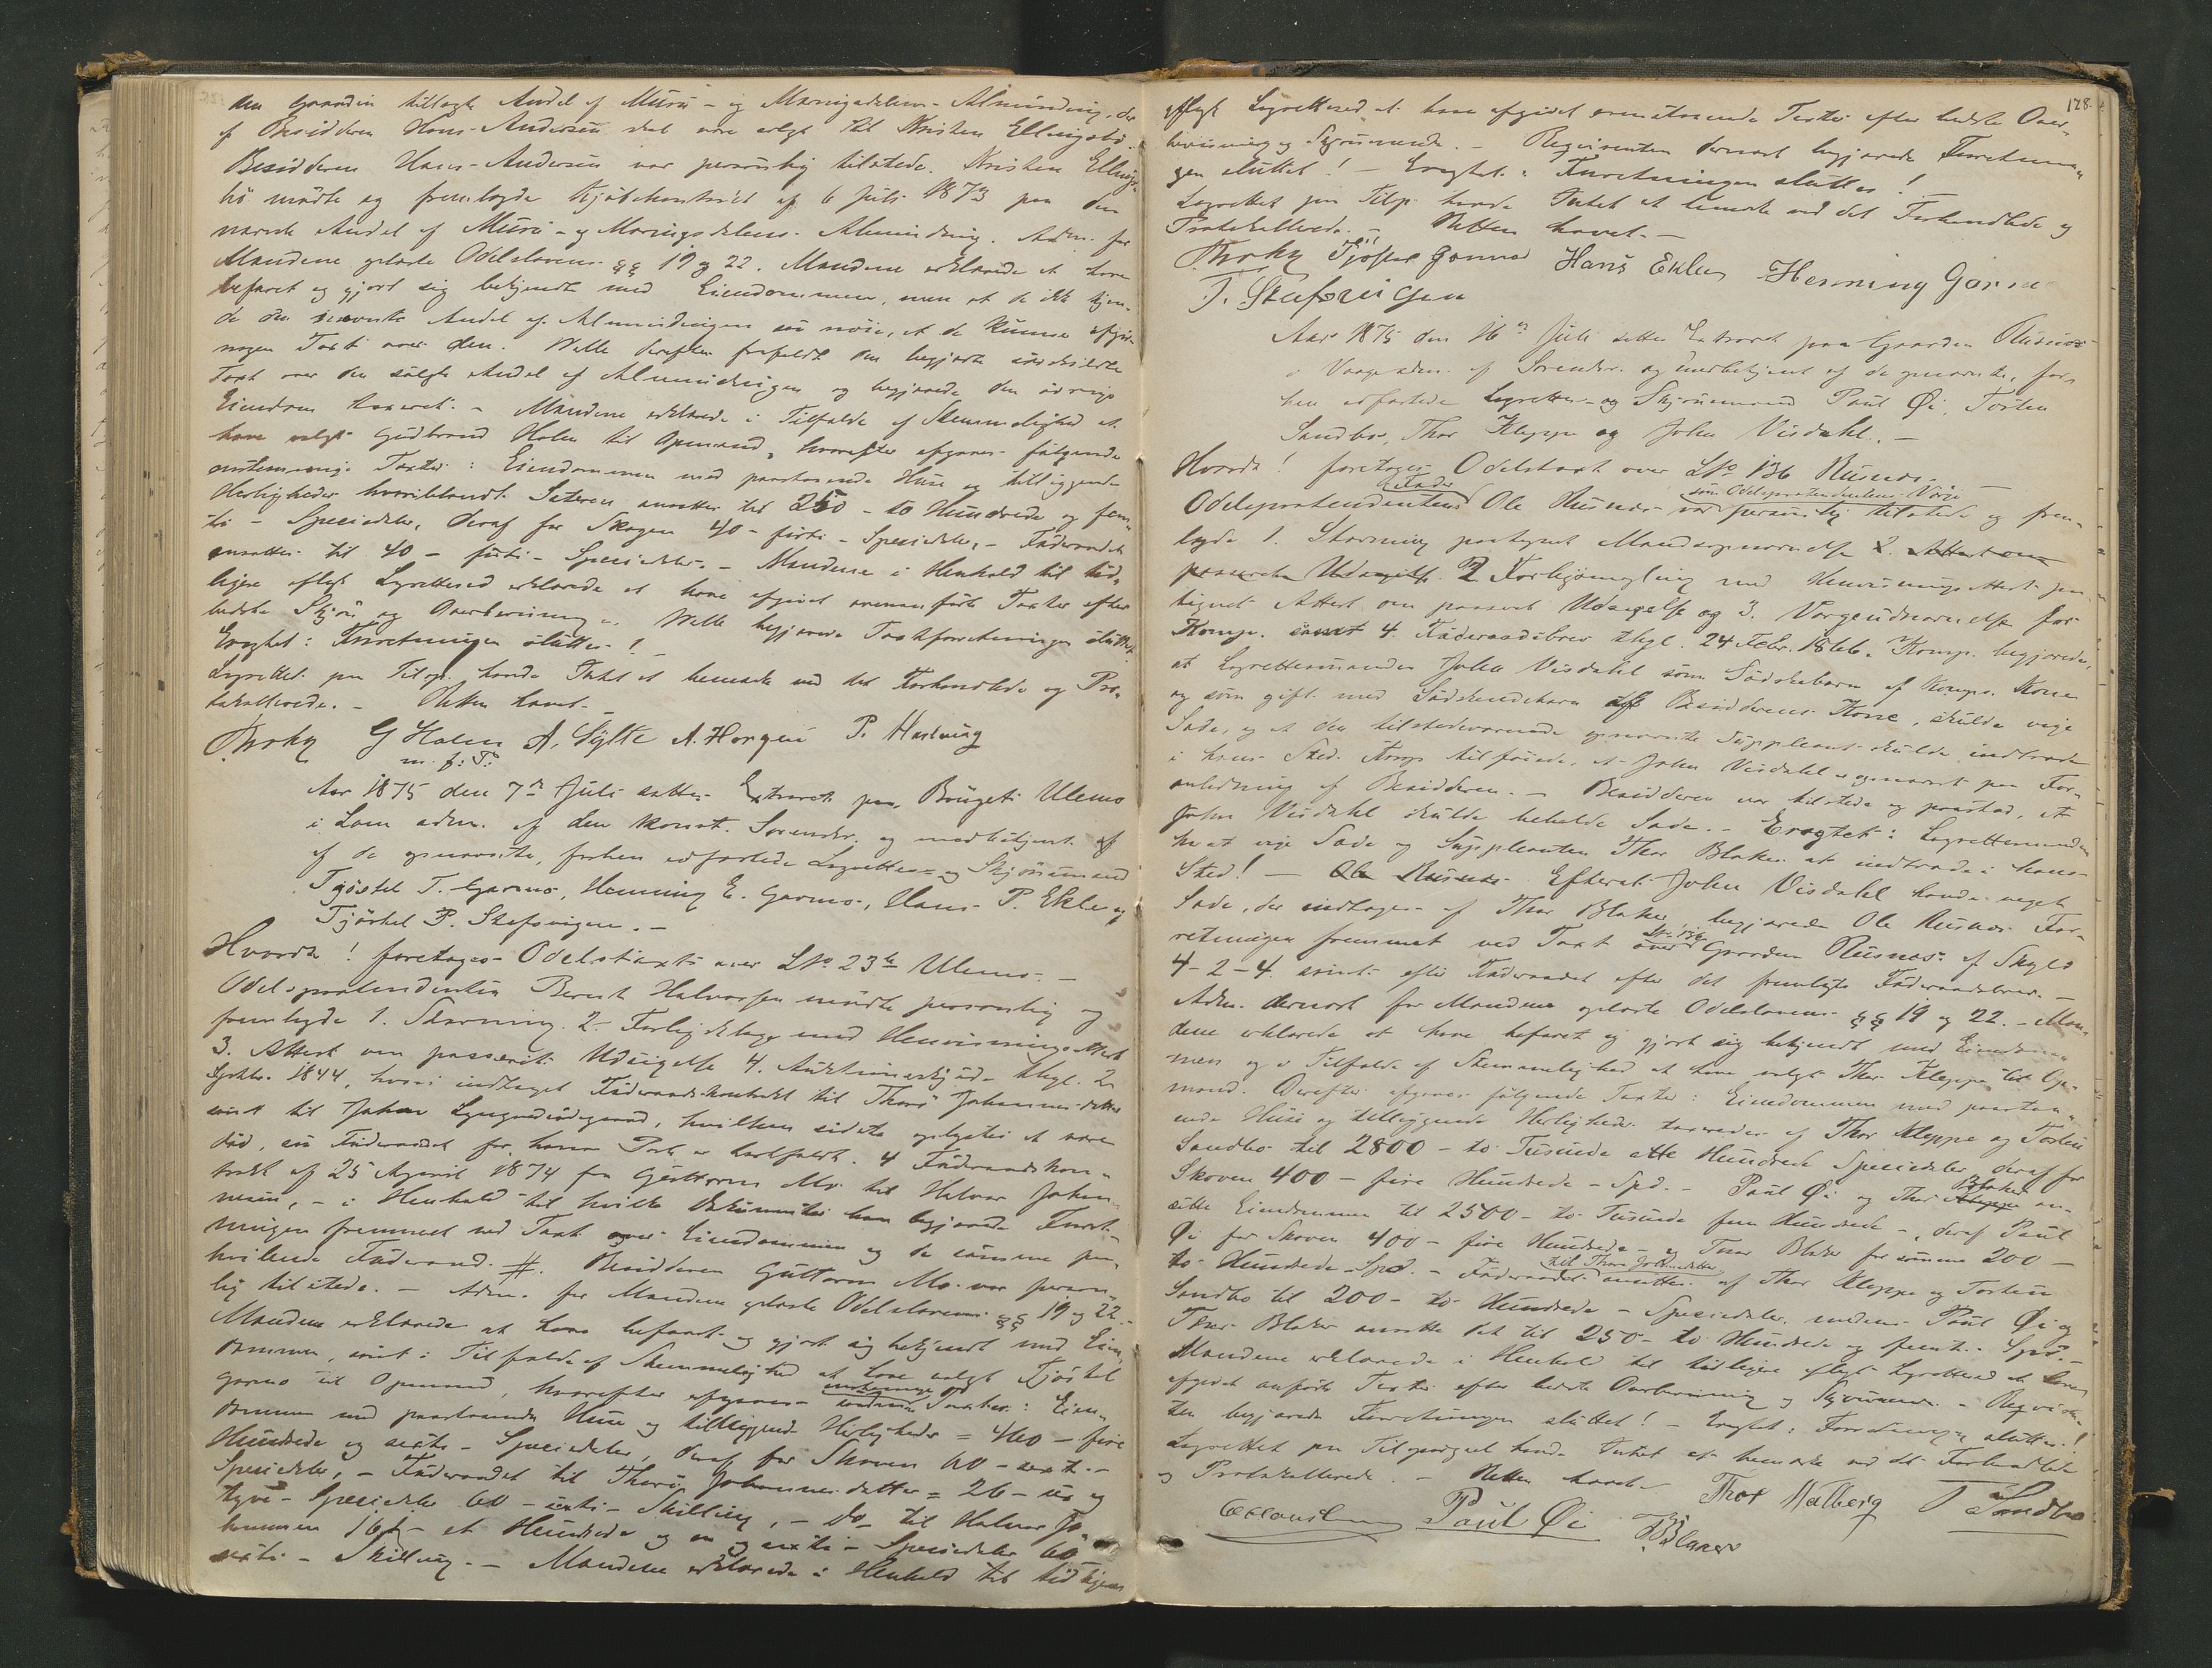 den Gaarden tillagte Andel af Muru- og Maringsdalens-Almindning, der
af Besidderen Hans Andersen skal være solgt til Kristen Ellingsbø.
Besidderen Hans Andersen var personlig tilstede. Kristen Ellings-
bø mødte og fremlagde Kjøbekontrakt af 6 Juli 1873 paa den
nævnte Andel af Muru- og Maringsdalens Almindning. Adm. for
Mændene oplæste Odelslovens §§ 19 og 22. Mændene erklærede at have
befaret og gjort sig bekjendt med Eiendommen, men at de ikke kjen-
de den nævnte Andel af Almindingen saa nøie, at de kunne afgive
nogen Taxt over den. Welle derefter frafaldt den begjærte særskildte
Taxt over den solgte Andel af Almindingen og begjærede den øvrige
Eiendom taxeret. - Mændene erklærede i Tilfælde af Stemmelighed at
have valgt Gudbrand Holen til Opmand, hvorefter afgaves følgende
enstemmige Taxter: Eiendommen med paastaaende Huse og tilliggende
Herligheder hvoriblandt Sæteren ansættes til 250 - to Hundrede og fem-
ti - Speciedaler, deraf for Skogen 40 - førti - Speciedaler, - Føderaadet
ansættes til 40 - førti - Speciedaler. - Mændene i Henhold til tid-
ligere aflagt Lagrettesed erklærede at have afgivet ovenanførte Taxter efter
bedste Skjøn og Overbevisning. Welle begjærede Taxtforretningen sluttet.
Eragtet: Forretningen sluttes!
Lagrettet paa Tilsp. havde Intet at bemærke ved det Forhandlede og Pro-
tokollerede. - Retten hævet. -
Thoky G Holen A. Sylte A. Horgen P. Hastnæg
m. f. P.
Aar 1875 den 7de Juli sattes Extraret paa Bruget Ulemo
i Lom adm. af den konst. Sorenskr. og medbetjent af
af de opnævnte, forhen edfæstede Lagrettes- og Skjønsmænd
Tjøstel T. Garmo, Henning E. Garmo, Hans P. Ekle og
Tjøstel P. Stafsvigen. -
Hvorda! foretages Odelstaxt over LNo 23b Ulemo. -
Odelspretendenten Berent Halvorsen mødte personlig og
fremlagde 1. Stævning. 2. Forligsklage med Henvisningsattest
3. Attest om passeret Udsigelse 4. Auktionsskjøde thgl. 2
Septbr. 1844, hvori indtaget Føderaadskontrakt til Thorø Johannesdatter
samt til Johan Lyngvedødegaard, hvilken sidste oplystes at være
død, saa Føderaadet for hans Part er bortfaldt. 4 Føderaadskon-
trakt af 25 April 1874 fra Guttorm Mo til Halvor Johan-
nesen, - i Henhold til hvilke Dokumenter han begjærede Forret-
ningen fremmet ved Taxt over Eiendommen og de samme paa-
hvilende Føderaad. #. Besidderen Guttorm Mo var person-
lig tilstede. - Adm. for Mændene oplæste Odelslovens §§ 19 og 22. -
Mændene erklærede at have befaret og gjort sig bekjendt med Eien-
dommen, samt i Tilfælde af Stemmelighed at have valgt Tjøstel
Garmo til Opmand, hvorefter afgaves enstemmige Taxter: Eien-
dommen med paastaaende Huse og tilliggende Herligheder = 460 - fire
Hundrede og sexti - Speciedaler, deraf for Skoven 60 - sexti -
Speciedaler, - Føderaadet til Thorø Johannesdatter = 26 - sex og
tyve - Speciedaler 60 - sexti - Skilling, - Do til Halvor Jo-
hannesen 161 - et Hundrede og en og sexti - Speciedaler 60
sexti - Skilling. - Mændene erklærede i Henhold til tidligere
128.
aflagt Lagrettesed at have afgivet ovenstaaende Taxter efter bedste Over-
bevisning og Skjønnende. - Requirenten dernæst begjærede Forretnin-
gen sluttet! - Eragtet: Forretningen sluttes!
Lagrettet paa Tilsp. havde Intet at bemærke ved det Forhandlede og
Protokollerede. - Retten hævet. -
Thoky Tjøstel Garmo Hans Eklen Henning Garmo
T. Stafsvigen
Aar 1875 den 16de Juli sattes Extraret paa Gaarden Rusnæs
i Vaage adm. af Sorenskr. og medbetjent af de opnævnte, for-
hen edfæstede Lagrettes- og Skjønsmænd Paul Øi, Torsten
Sandbo, Thor Kleppe og John Visdahl. -
Hvorda! foretages Odelstaxt over LNo 136 Rusnæs. -
Odelspretendentens Fader Ole Rusnæs var som Odelspretendentens Værge personlig tilstede og frem-
lagde 1. Stævning paategnet Mandsopnævnelse 2. Attest om
passeret Udsigelse 2 Forligsmægling med Henvisningsattest paa-
tegnet Attest om passeret Udsigelse og 3. Værgeudnævnelse for
Komp. samt 4. Føderaadsbrev thgl. 24 Febr. 1866. Komp. begjærede,
at Lagrettesmanden John Visdahl som Sødskebarn af Komps. Kone
og som gift med Sødskendebarn af Besidderens Kone, skulde vige
Sæde, og at den tilstedeværende opnævnte Suppleant skulde indtræde
i hans Sted. Komp. tilføiede, at John Visdahl er opnævnt paa For-
anledning af Besidderen. - Besidderen var tilstede og paastod, at
John Visdahl skulde beholde Sæde. - Eragtet: Lagrettemanden
har at vige Sæde og Suppleanten Thor Blaker at indtræde i hans
Sted! - Ole Rusnæs Efterat John Visdahl havde veget
Sæde, der indtages af Thor Blaker, begjærede Ole Rusnæs For-
retningen fremmet ved Taxt over LNo 136 Gaarden Rusnæs af Skyld
4-2-4. samt efter Føderaadet efter det fremlagte Føderaadsbrev. -
Adm. dernæst for Mændene oplæste Odelslovens §§ 19 og 22. - Mæn-
dene erklærede at have befaret og gjort sig bekjendt med Eiendom-
men og i Tilfælde af Stemmelighed at have valgt Thor Kleppe til Op-
mand. Derefter afgaves følgende Taxter: Eiendommen med paastaa-
ende Huse og tilliggende Herligheder taxeredes af Thor Kleppe og Torsten
Sandbo til 2800 - to Tusinde otte Hundrede Speciedaler, deraf for
Skoven 400 - fire Hundrede - Spd. - Paul Øi og Thor Kleppe Blaker an-
satte Eiendommen til 2500 - to Tusinde fem Hundrede -, deraf Paul
Øi for Skoven 400 - fire Hundrede - og Thor Blaker for samme 200 -
to Hundrede Spd. - Føderaadet til Thore Johnsdatter ansattes af Thor Kleppe og Torsten
Sandbo til 200 - to Hundrede - Speciedaler, medens Paul Øi og
Thor Blaker ansatte det til 250 - to Hundrede og femti - Spd. -
Mændene erklærede i Henhold til tidligere aflagt Lagrettesed at have
afgivet anførte Taxter efter bedste Overbevisning og Skjønnende. - Reqvirent-
ten begjærede Forretningen sluttet! - Eragtet: Forretningen sluttes!
Lagrettet paa Tilspørgsel havde Intet at bemærke ved det Forhandlede
og Protokollerede. - Retten hævet. -
Paul Øi T. Blaker Thor Malberg T Sandbo